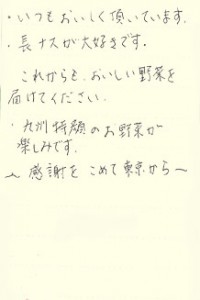 ・いつもおいしく頂いています。
・長ナスが大好きです。
これからも、おいしい野菜を
届けてください。
・九州特産のお野菜が
楽しみです。
〜感謝をこめて東京から〜